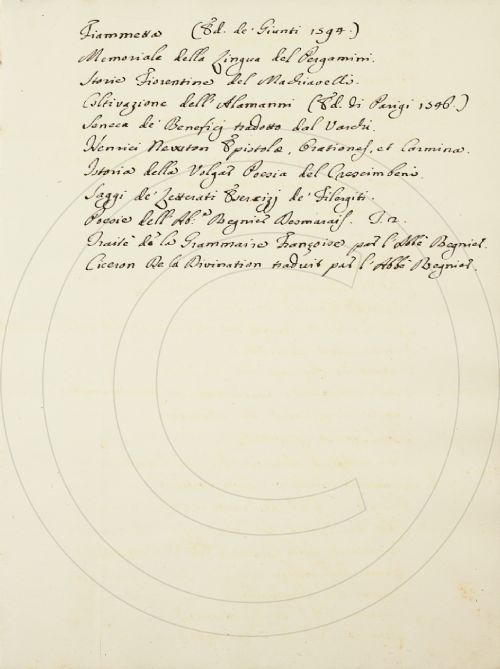 Fiammetta (Ed. de' Giunti 1594.)
Memoriale della Lingua del Pergamini.
Storie Fiorentine del Machiavelli.
Coltivazione dell' Alamanni (Ed. di Parigi 1546.)
Seneca de' Benefizj tradotto dal Varchi.
Henrici Newton Epistolæ, Orationes, et Carmina.
Istoria della Volgar Poesia del Crescimbeni.
Saggi de' Letterati Esercizj de' Filergiti.
Poesie dell' Ab.e Regnier Desmarais. T. 2.
Traité de la Grammaire Françoise par l'Abbé Regnier.
Ciceron De la Divination traduit par l'Abbé Regnier.